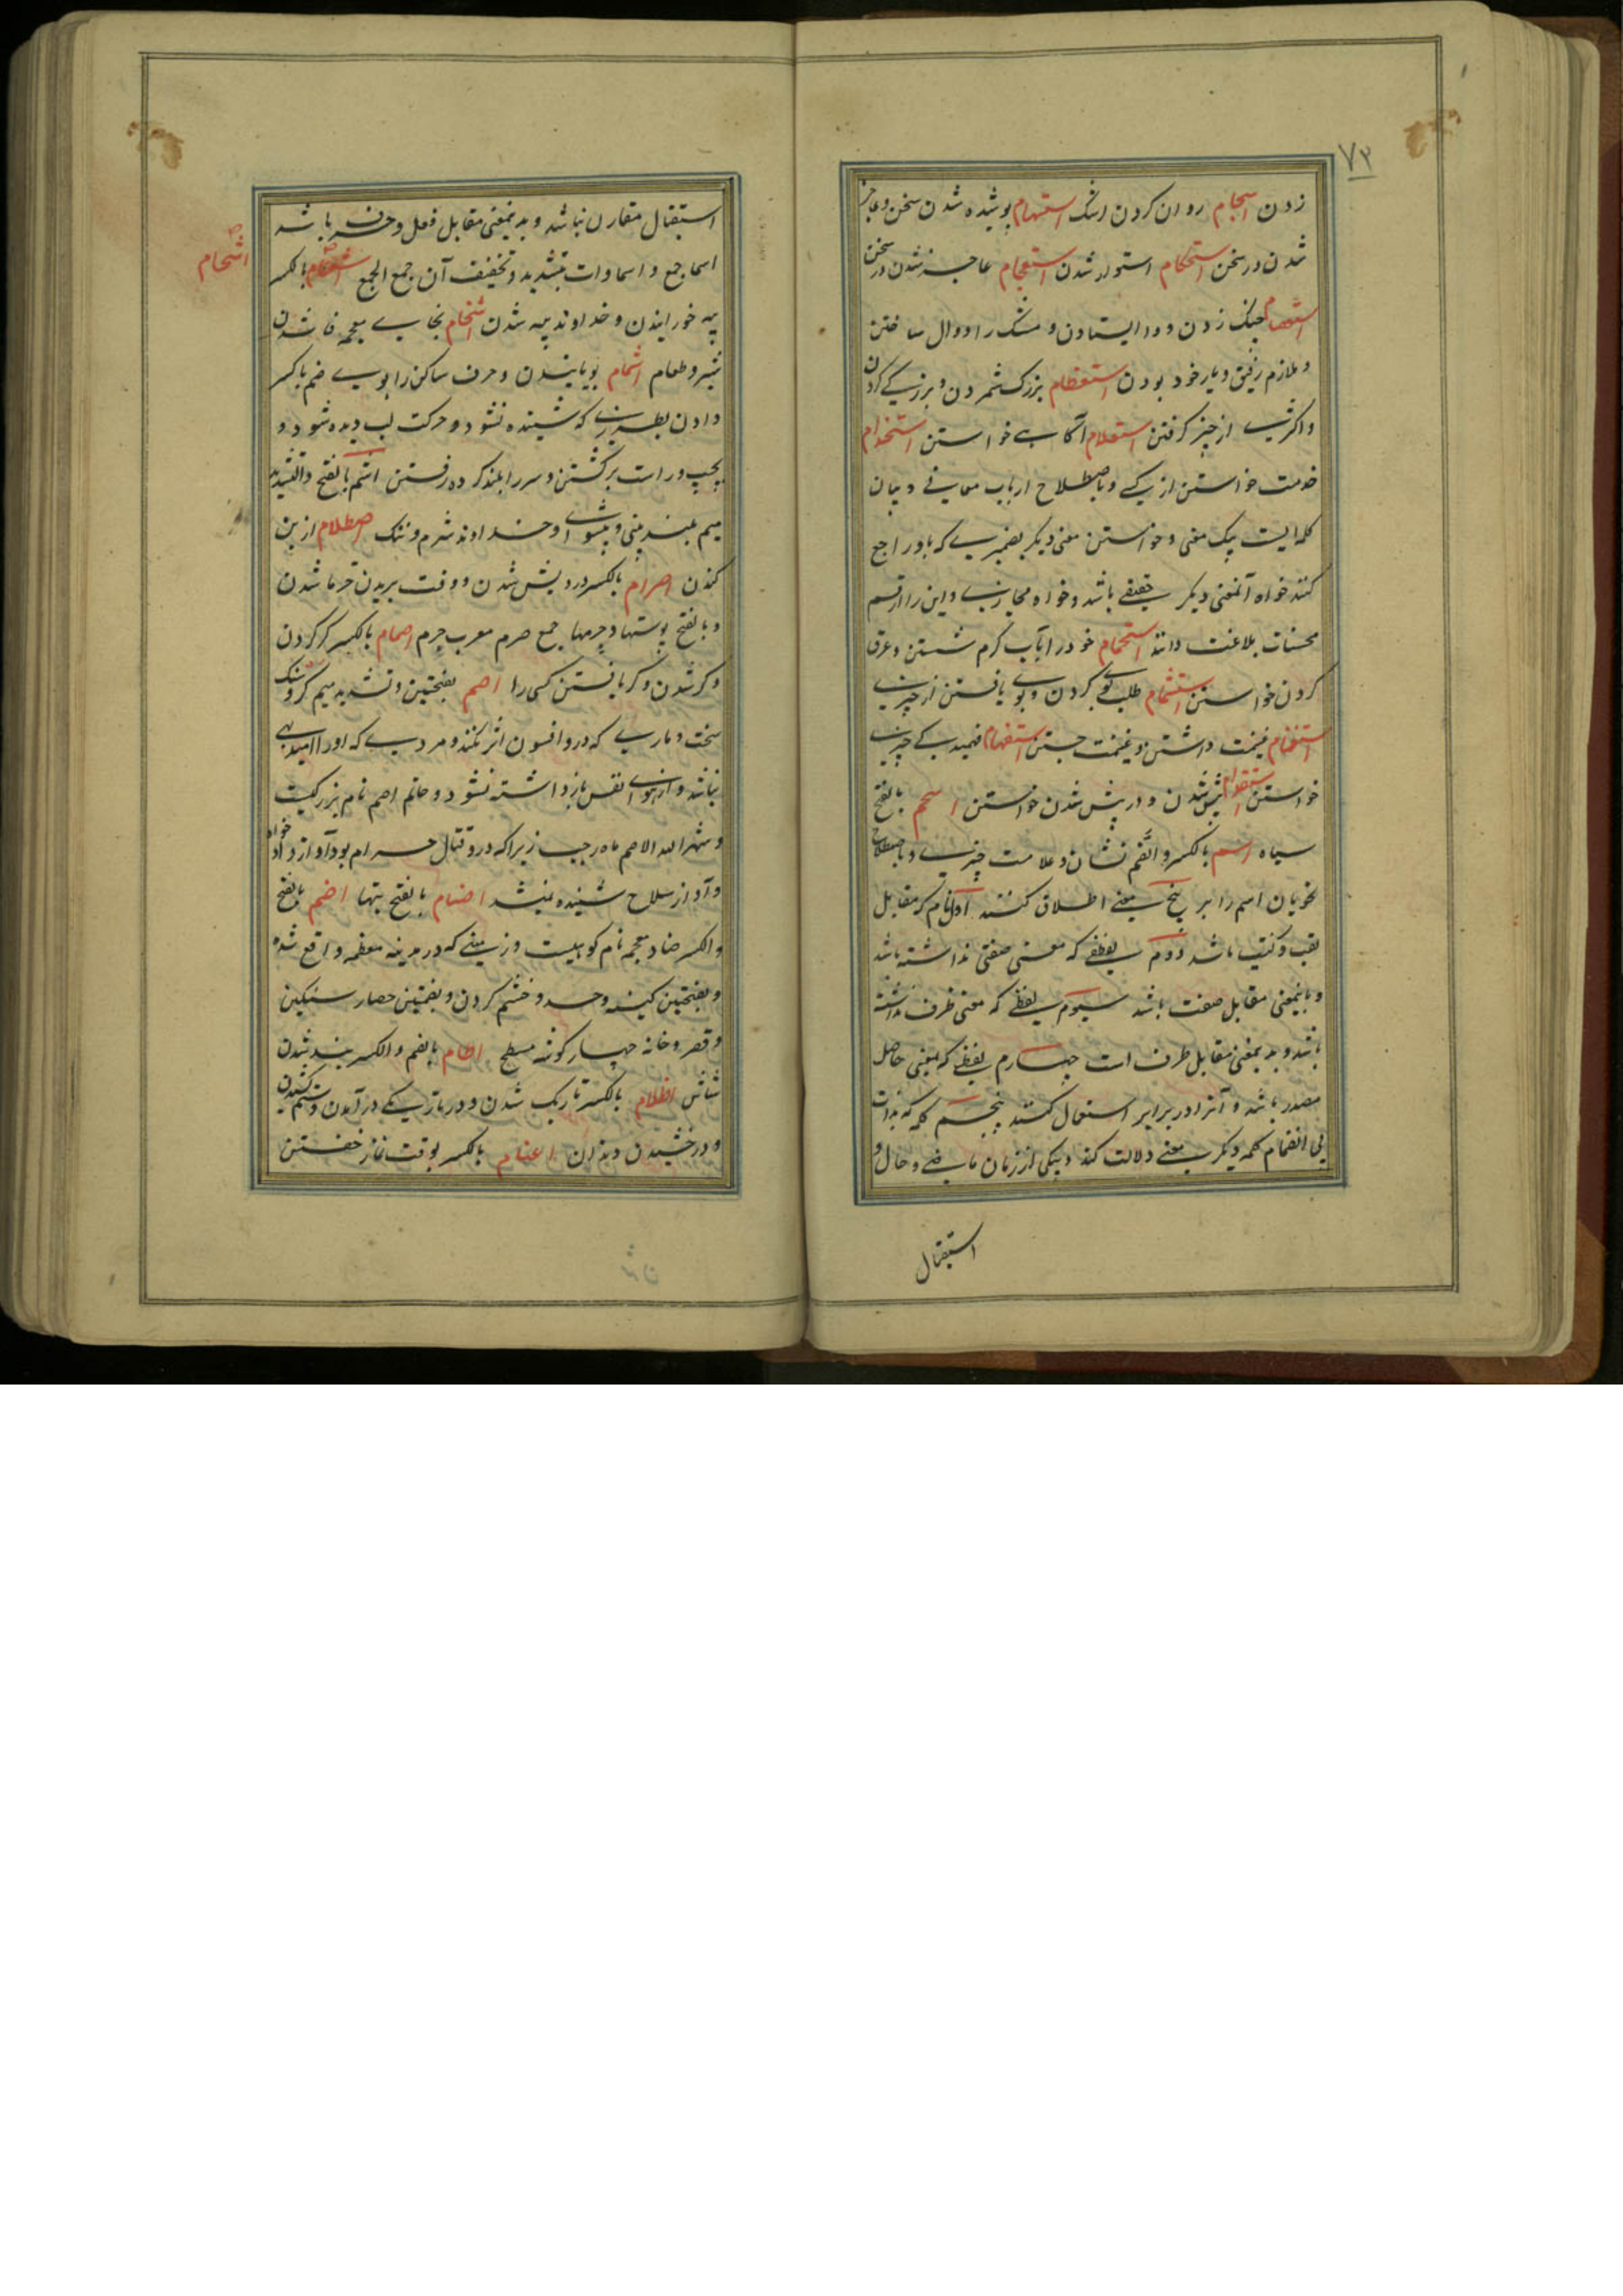 ۷۳
زدن اسجام روان کردن اشک استبهام پوشیده شدن سخن و عاجز
شدن در سخن استحکام استوار شدن استعجام عاجز شدن در سخن
چنگ زدن و وا ایستادن و مشک را دوال ساختن
و ملازم رفیق و یار خود بودن استعظام بزرگ شمردن و بزرگی کردن
و اکثر از چیز گرفتن استعلام آگاهی خواستن استخدام
خدمت خواستن از کسی و باصطلاح ارباب معانی و بیان
کلمه ایست بیک معنی و خواستن معنی دیگر بضمیری که باو راجع
کنند خواه آنمعنی دیگر حقیقی باشد و خواه مجازی و این را از قسم
محسنات بلاغت دانند استحمام خود را بآب گرم شستن و عرق
کردن خواستن استشمام طلب بوی کردن و بوی یافتن از چیزی
استغنام غنیمت داشتن و غنیمت جستن استفهام فهمیدگی چیزی
خواستن استقدام پیش شدن و در پیش شدن خواستن اسحم بالفتح
سیاه اسم بالکسر و الضم نشان و علامت چیزی و باصطلاح
نحویان اسم را بر پنج معنی اطلاق کنند اول نام که مقابل
لقب و کنیت باشد دوم لفظی که معنی صفتی نداشته باشد
و باینمعنی مقابل صفت باشد سیوم لفظی که معنی ظرف نداشته
باشد و بدینمعنی مقابل ظرف است چهارم لفظی که بمعنی حاصل
مصدر باشد و آنرا در برابر استعمال کنند پنجم کلمه که بذات
بی انضمام کلمه دیگر بمعنی دلالت کند و بیکی از زمان ماضی و حال و
استقبال
استقبال مقارن نباشد و بدینمعنی مقابل فعل و حرف باشد
اسما جمع و اسماوات بتشدید و تخفیف آن جمع الجمع بالکسر
اشحام
پیه خورانیدن و خداوند پیه شدن اشخام بخای معجمه فاسد شدن
شیر و طعام اشمام بویانیدن و حرف ساکن را بوی ضم یا کسر
دادن بطریقی که شنیده نشود و حرکت لب دیده شود و
بچپ و راست برگشتن و سر را بلند کرده رفتن اشم بالفتح و التشدید
میم بلند بینی و پیشوای و خداوند شرم و ننگ اصطلام از بن
کندن اصرام بالکسر درویش شدن و وقت بریدن خرما شدن
و بالفتح پوستها و چرمها جمع صرم معرب چرم اصمام بالکسر کر کردن
و کر شدن و کر یافتن کسی را اصم بفتحتین و تشدید میم کر و سنگ
سخت و ماری که درو افسون اثر نکند و مردی که او را امید بهی
نباشد و از هوای نفس باز داشته نشود و حاتم اصم نام بزرگیست
و شهر الله الاصم ماه رجب زیرا که درو قتال حرام بود و آواز داد خواه
و آواز سلاح شنیده نمیشد اصنام بالفتح بتها اضم بالفتح
و الکسر ضاد معجمه نام کوهیست و زمینی که در مدینه معظمه واقع شده
و بفتحتین کینه و حسد و خشم کردن و بضمتین حصار سنگین
و قصر و خانه چهار گوشه مسطح اطام بالضم و الکسر بند شدن
شاش اظلام بالکسر تاریک شدن و در تاریکی در آمدن و ستم کشیدن
و درخشیدن دندان اعتام بالکسر بوقت نماز خفتن